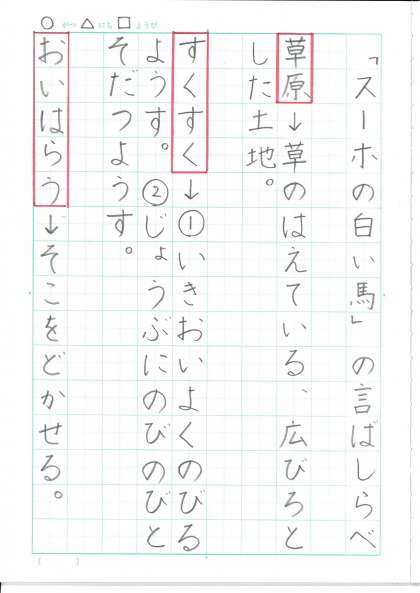 ○がつ△にち□ようび
「スーホの白い馬」の言ばしらべ
草原→草のはえている、広びろと
した土地。
すくすく→①いきおいよくのびる
ようす。②じょうぶにのびのびと
そだつようす。
おいはらう→そこをどかせる。
(　)